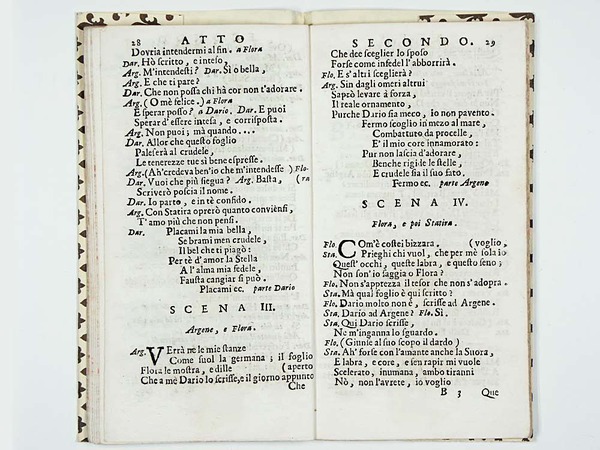 28 ATTO
Dovria intendermi al fin. a Flora
Dar. Hò scritto, e inteso,
Arg. M'intendesti? Dar. Sì ò bella,
Arg. E che ti pare?
Dar. Che non possa chi hà cor non t'adorare.
Arg. (O me felice.) a Flora
E sperar posso? a Dario. Dar. E puoi
Sperar d'essere intesa, e corrisposta.
Arg. Non puoi; mà quando....
Dar. Allor che questo foglio
Paleserà al crudele,
Le tenerezze tue sì bene espresse.
Arg. (Ah'credeva ben'io che m'intendesse) Flo-
Dar. Vuoi che più siegua? Arg. Basta, (ra
Scriverò poscia il nome.
Dar. Io parto, e in tè confido.
Arg. Con Statira oprerò quanto conviensi,
T'amo più che non pensi.
Dar. Placami la mia bella,
Se brami men crudele,
Il bel che ti piagò:
Per tè d'amor la Stella
A l'alma mia fedele,
Fausta cangiar si può.
Placami ec. parte Dario
SCENA III.
Argene, e Flora.
Arg. VErrà ne le mie stanze
Come suol la germana; il foglio
Flora le mostra, e dille (aperto
Che a me Dario lo scrisse, e il giorno appunto
Che
SECONDO. 29
Che dee sceglier lo sposo
Forse come infedel l'abborrirà.
Flo. E s'altri sceglierà?
Arg. Sin dagli omeri altrui
Saprò levare à forza,
Il reale ornamento,
Purche Dario sia meco, io non pavento.
Fermo scoglio in mezo al mare,
Combattuto da procelle,
E'il mio core innamorato:
Pur non lascia d'adorare,
Benche rigide le stelle,
E crudele sia il suo fato.
Fermo ec. parte Argene
SCENA IV.
Flora, e poi Statira.
Flo. COm'è costei bizzara. (voglio,
Sta. Prieghi chi vuol, che per me sola io
Quest'occhi, queste labra, e questo seno;
Non son'io saggia o Flora?
Flo. Non s'apprezza il tesor che non s'adopra.
Sta. Mà qual foglio è quì scritto?
Flo. Dario molto non è, scrisse ad Argene.
Sta. Dario ad Argene? Flo. Sì.
Sta. Qui Dario scrisse,
Ne m'inganna lo sguardo.
Flo. (Giunse al suo scopo il dardo)
Sta. Ah'forse con l'amante anche la Suora,
E labra, e core, e sen rapir mi vuole
Scelerato, inumana, ambo tiranni
Nò, non l'avrete, io voglio
B 3 Que